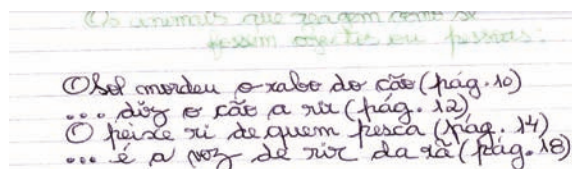 Os animais que reagem como se
fossem objetos ou pessoas:
O Sol mordeu o rabo do cão (pág. 10)
... diz o cão a rir (pág. 12)
O peixe ri de quem pesca (pág. 14)
... é a voz de rir da rã (pág. 18)